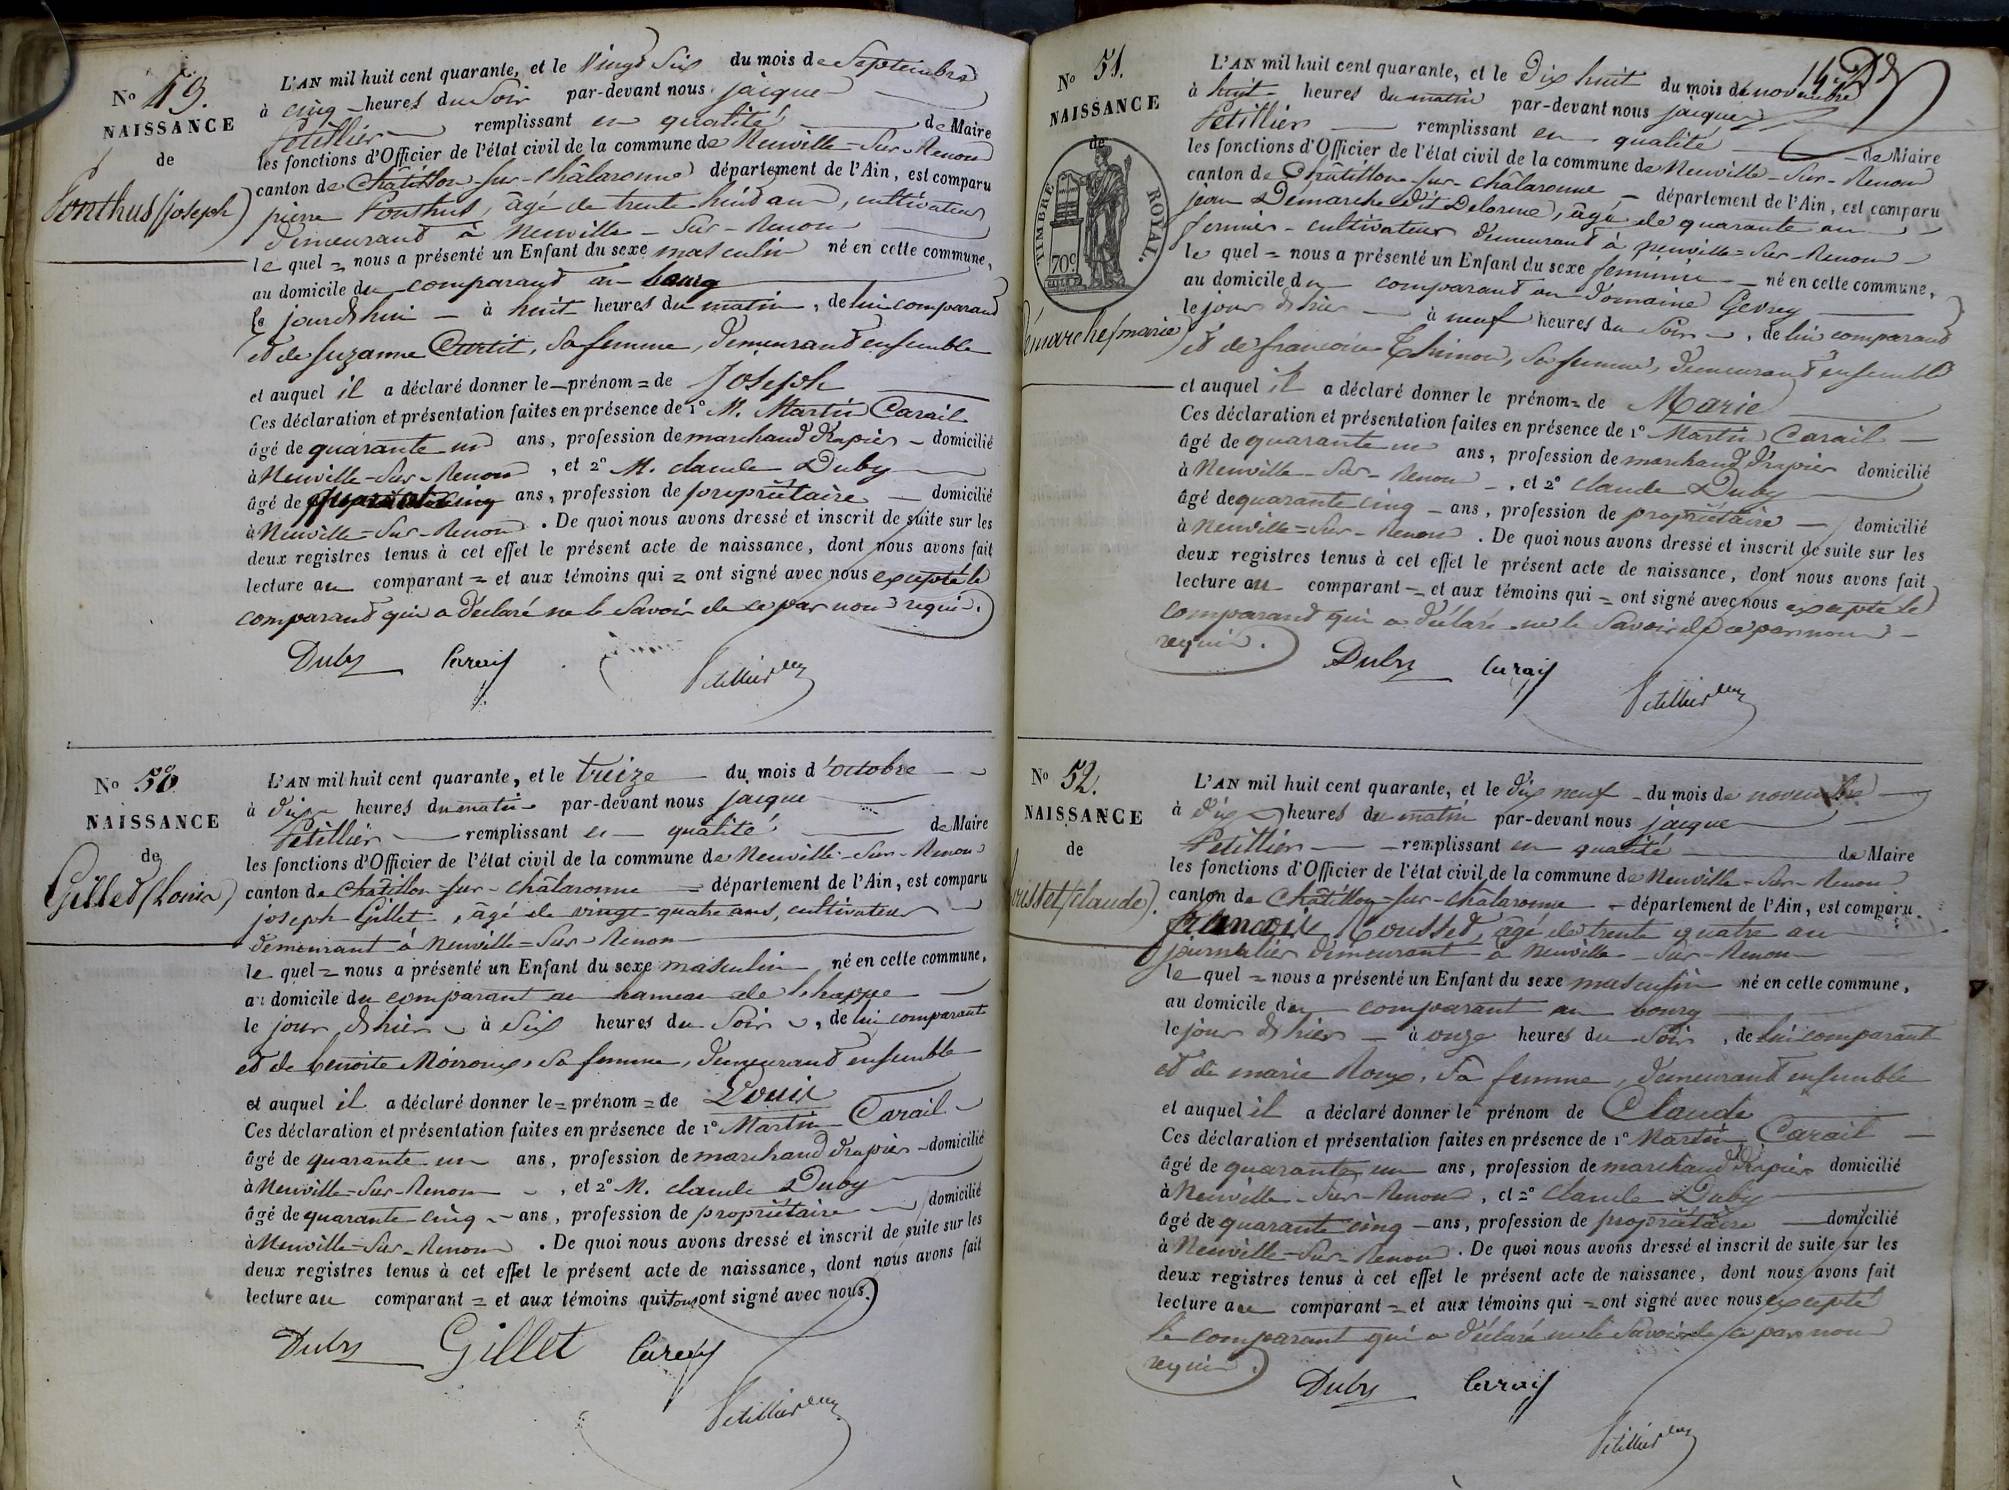 N° 49.
NAISSANCE
de
Ponthus (joseph)
L'AN mil huit cent quarante, et le vingt six du mois de Septembre
à cinq heures du soir par-devant nous jacque
Petillier remplissant en qualité de Maire
les fonctions d'Officier de l'état civil de la commune de Neuville-Sur-Renon
canton de Châtillon-sur-Châlaronne département de l'Ain, est comparu
pierre Ponthus, âgé de trente huit ans, cultivateur
demeurant à Neuville-Sur-Renon
le quel = nous a présenté un Enfant du sexe masculin né en cette commune,
au domicile du comparant au bourg
le jourdhui à huit heures du matin, de lui comparant
et de suzanne Curtit, sa femme, demeurant ensemble
et auquel il a déclaré donner le prénom = de Joseph
Ces déclaration et présentation faites en présence de 1° M. Martin Carail
âgé de quarante un ans, profession de marchand drapier domicilié
à Neuville-Sur-Renon, et 2° M. claude Duby
âgé de quarante cinq ans, profession de propriétaire domicilié
à Neuville-Sur-Renon. De quoi nous avons dressé et inscrit de suite sur les
deux registres tenus à cet effet le présent acte de naissance, dont nous avons fait
lecture au comparant = et aux témoins qui = ont signé avec nous excepté le
comparant qui a déclaré ne le savoir de ce par nous requi.
Duby Carail Petillier
N° 50
NAISSANCE
de
Gillet (Louis)
L'AN mil huit cent quarante, et le treize du mois d'octobre
à dix heures du matin par-devant nous jacque
Petillier remplissant en qualité de Maire
les fonctions d'Officier de l'état civil de la commune de Neuville-Sur-Renon
canton de Châtillon-sur-châlaronne = département de l'Ain, est comparu
joseph Gillet, âgé de vingt-quatre ans, cultivateur
demeurant à Neuville-Sur-Renon
le quel = nous a présenté un Enfant du sexe masculin né en cette commune,
au domicile du comparant au hameau de
le jour d'hier à six heures du soir, de lui comparant
et de benoite Moiroux, sa femme, demeurant ensemble
et auquel il a déclaré donner le = prénom = de Louis
Ces déclaration et présentation faites en présence de 1° Martin Carail
âgé de quarante un ans, profession de marchand drapier domicilié
à Neuville-Sur-Renon, et 2° M. claude Duby
âgé de quarante cinq ans, profession de propriétaire domicilié
à Neuville-Sur-Renon. De quoi nous avons dressé et inscrit de suite sur les
deux registres tenus à cet effet le présent acte de naissance, dont nous avons fait
lecture au comparant = et aux témoins qui tous ont signé avec nous.
Duby Gillet Carail
Petillier
N° 51.
NAISSANCE
de
TIMBRE ROYAL.
70c.
Démarche (marie)
L'AN mil huit cent quarante, et le dix huit du mois de novembre
à huit heures du matin par-devant nous jacque
Petillier remplissant en qualité de Maire
les fonctions d'Officier de l'état civil de la commune de Neuville-Sur-Renon
canton de Châtillon-sur-châlaronne département de l'Ain, est comparu
jean Démarche dit Delorme, âgé de quarante an
fermier-cultivateur demeurant à Neuville-Sur-Renon
le quel = nous a présenté un Enfant du sexe féminin né en cette commune,
au domicile du comparant au domaine Gevrey
le jour d'hier à neuf heures du soir, de lui comparant
et de francoise Thinon, sa femme, demeurant ensemble
et auquel il a déclaré donner le prénom = de Marie
Ces déclaration et présentation faites en présence de 1° Martin Carail
âgé de quarante un ans, profession de marchand drapier domicilié
à Neuville-Sur-Renon, et 2° claude Duby
âgé de quarante cinq ans, profession de propriétaire domicilié
à Neuville-Sur-Renon. De quoi nous avons dressé et inscrit de suite sur les
deux registres tenus à cet effet le présent acte de naissance, dont nous avons fait
lecture au comparant = et aux témoins qui = ont signé avec nous excepté le
comparant qui a déclaré ne le savoir de ce par nous
requi.
Duby Carail
Petillier
N° 52.
NAISSANCE
de
ousset (claude).
L'AN mil huit cent quarante, et le dix neuf du mois de novembre
à dix heures du matin par-devant nous jacque
Petillier remplissant en qualité de Maire
les fonctions d'Officier de l'état civil de la commune de Neuville-Sur-Renon
canton de Châtillon-sur-châlaronne département de l'Ain, est comparu
françois Rousset, âgé de trente quatre an
journalier demeurant à Neuville-Sur-Renon
le quel = nous a présenté un Enfant du sexe masculin né en cette commune,
au domicile du comparant au bourg
le jour d'hier à onze heures du soir, de lui comparant
et de marie Roux, sa femme, demeurant ensemble
et auquel il a déclaré donner le prénom de Claude
Ces déclaration et présentation faites en présence de 1° Martin Carail
âgé de quarante un ans, profession de marchand drapier domicilié
à Neuville-Sur-Renon, et 2° claude Duby
âgé de quarante cinq ans, profession de propriétaire domicilié
à Neuville-Sur-Renon. De quoi nous avons dressé et inscrit de suite sur les
deux registres tenus à cet effet le présent acte de naissance, dont nous avons fait
lecture au comparant = et aux témoins qui = ont signé avec nous excepté
le comparant qui a déclaré ne le savoir de ce par nous
requi.
Duby Carail
Petillier